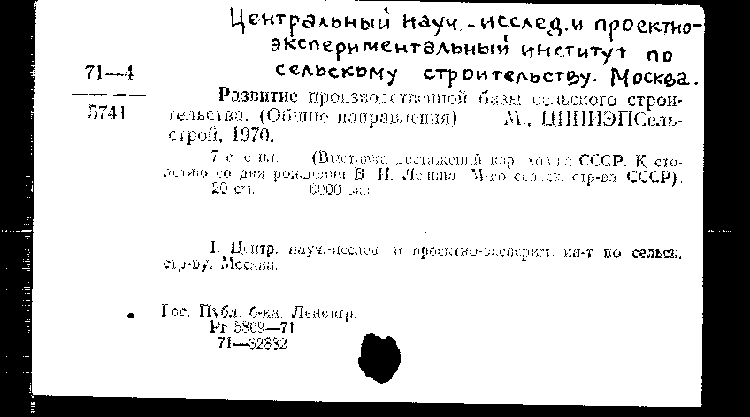 Центральный науч.-исслед. и проектно-
экспериментальный институт по
сельскому строительству. Москва.
71—4
5741
Развитие производственной базы сельского строи-
тельства. (Общие направления) М., ЦНИИЭПСель-
строй, 1970.
7 с. с ил. (Выставка достижений нар. хоз-ва СССР. К сто-
летию со дня рождения В. И. Ленина. М-во сельск. стр-ва СССР).
20 см. 6000 экз.
1. Центр. науч.-исслед. и проектно-эксперим. ин-т по сельск.
стр-ву. Москва.
Гос. Публ. б-ка. Ленингр.
Рг 5809—71
71—32832